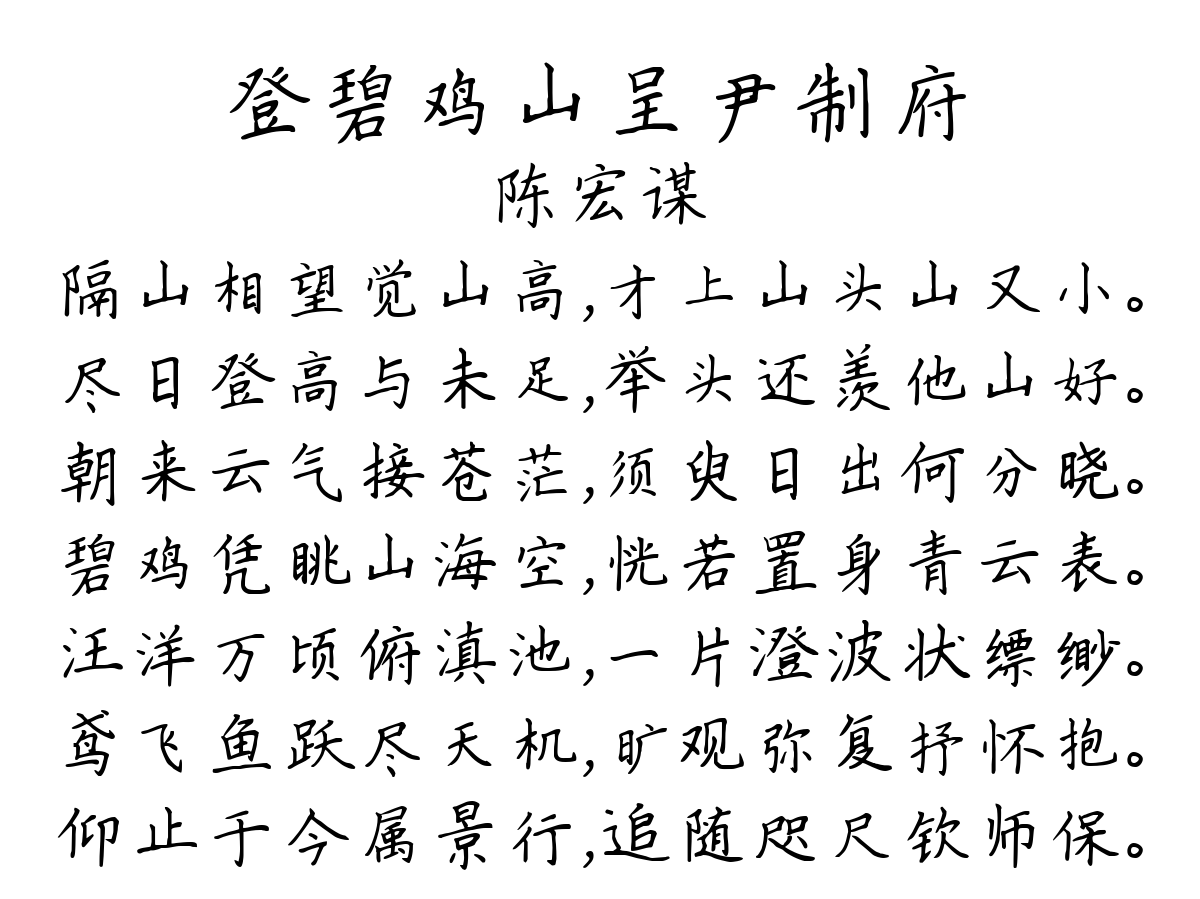 登碧鸡山呈尹制府
陈宏谋
隔山相望觉山高,才上山头山又小。
尽日登高与未足,举头还羡他山好。
朝来云气接苍茫,须臾日出何分晓。
碧鸡凭眺山海空,恍若置身青云表。
汪洋万顷俯滇池,一片澄波状缥缈。
鸢飞鱼跃尽天机,旷观弥复抒怀抱。
仰止于今属景行,追随咫尺钦师保。